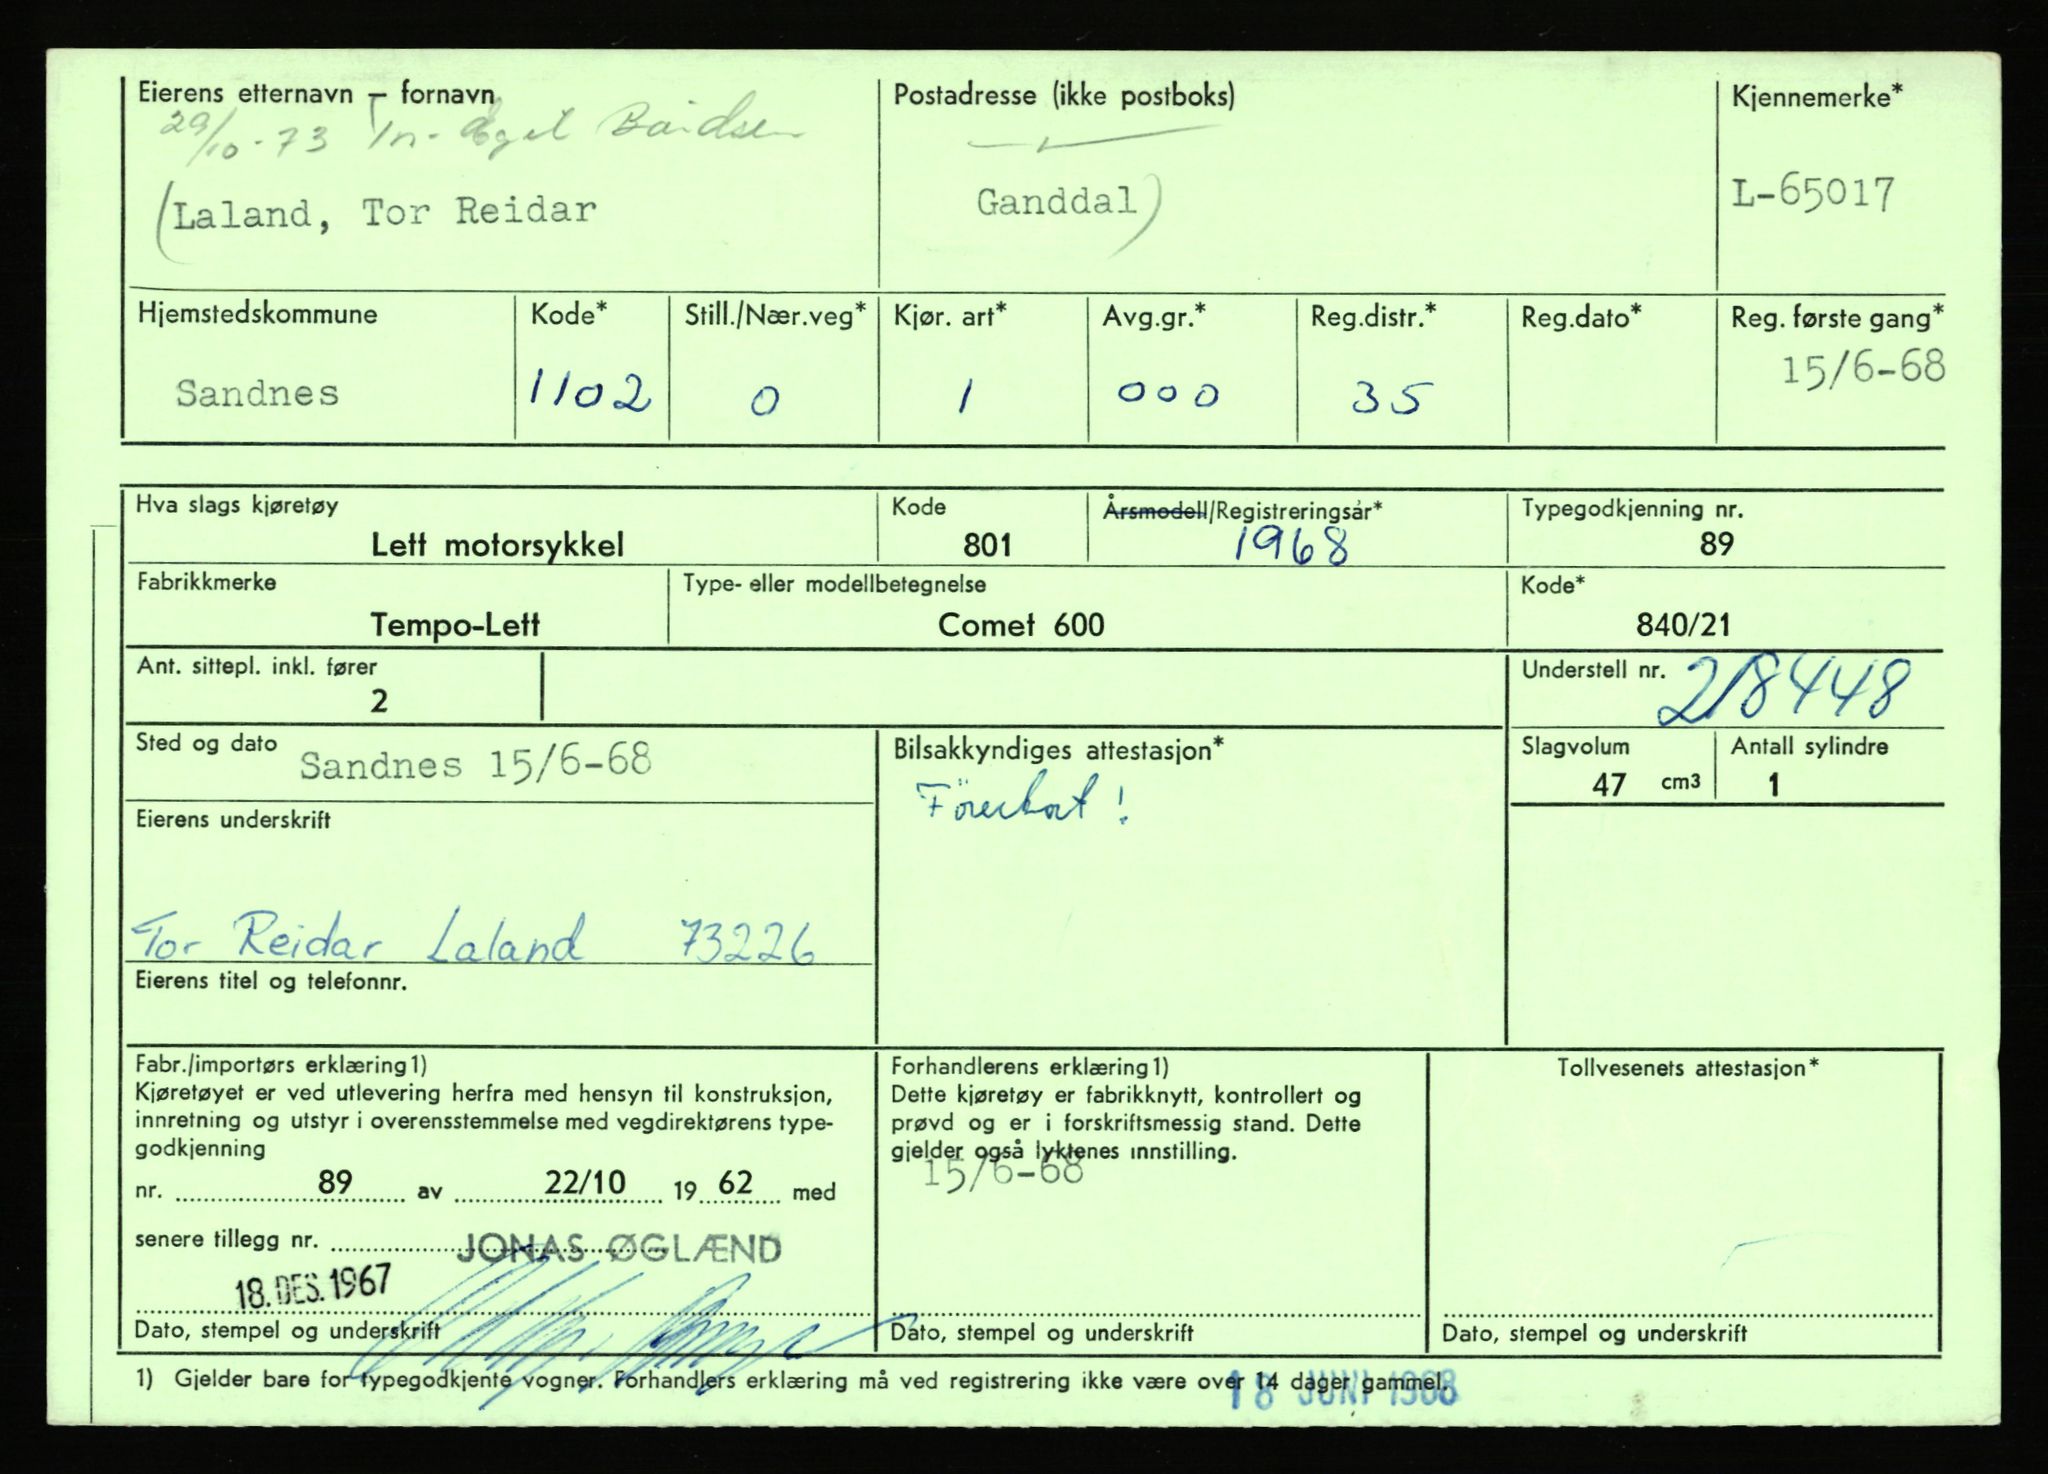 Eierens etternavn – fornavn
29/10-73
Laland, Tor Reidar
Postadresse (ikke postboks)
Ganddal
Kjennemerke*
L-65017
Hjemstedskommune
Sandnes
Kode*
1102
Still./Nær.veg*
0
Kjør. art*
1
Avg.gr.*
000
Reg.distr.*
35
Reg.dato*
Reg. første gang*
15/6-68
Hva slags kjøretøy
Lett motorsykkel
Kode
801
Årsmodell/Registreringsår*
1968
Typegodkjenning nr.
89
Fabrikkmerke
Tempo-Lett
Type- eller modellbetegnelse
Comet 600
Kode*
840/21
Ant. sittepl. inkl. fører
2
Understell nr.
218448
Sted og dato
Sandnes 15/6-68
Bilsakkyndiges attestasjon*
Förerkort !
Slagvolum
47 cm3
Antall sylindre
1
Eierens underskrift
Tor Reidar Laland 73226
Eierens titel og telefonnr.
Fabr./importørs erklæring1)
Kjøretøyet er ved utlevering herfra med hensyn til konstruksjon,
innretning og utstyr i overensstemmelse med vegdirektørens type-
godkjenning
nr. 89 av 22/10 19 62 med
senere tillegg nr.
JONAS ØGLÆND
18. DES. 1967
Dato, stempel og underskrift
Forhandlerens erklæring1)
Dette kjøretøy er fabrikknytt, kontrollert og
prøvd og er i forskriftsmessig stand. Dette
gjelder også lyktenes innstilling.
15/6-68
Dato, stempel og underskrift
Tollvesenets attestasjon*
Dato, stempel og underskrift
1) Gjelder bare for typegodkjente vogner. Forhandlers erklæring må ved registrering ikke være over 14 dager gammel.
18 JUNI 1968